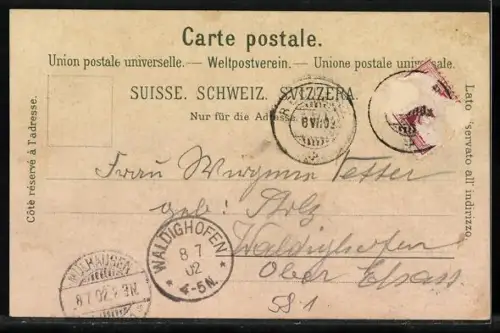 Carte postale.
Union postale universelle. — Weltpostverein. — Unione postale universale.
SUISSE. SCHWEIZ. SVIZZERA.
Nur für die Adresse.
Côté réservé à l'adresse.
Lato riservato all'indirizzo.
Frau Vetter
geb: Stolz
Waldighofen
Ober Elsass
58.1
WALDIGHOFEN
8 7
02
* 4-5N. *
MÜLHAUSEN
8.7.02. 2-3N.